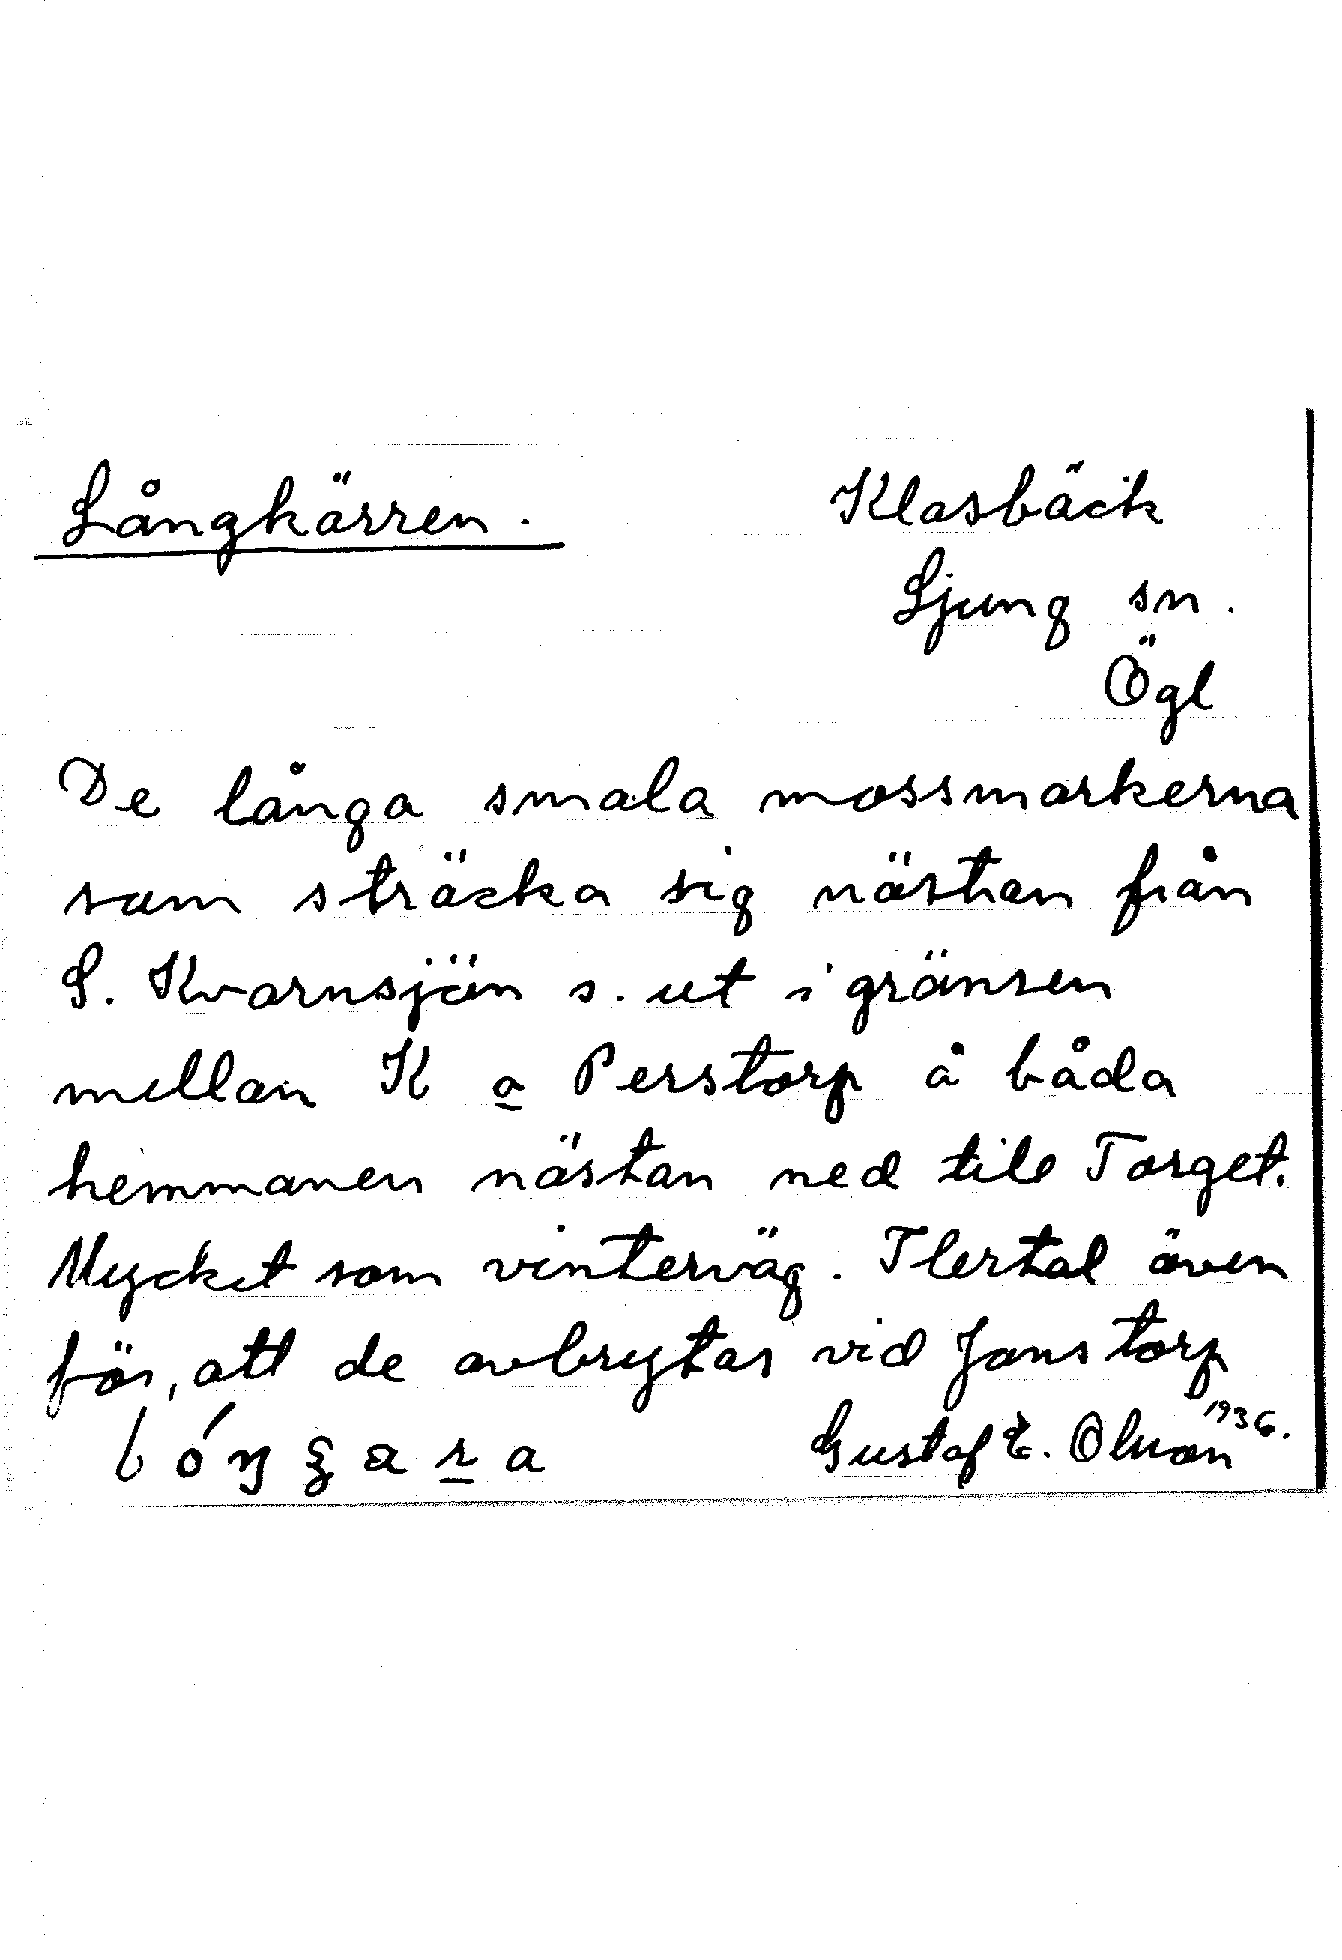 Långkärren.
Klasbäck
Ljung sn.
Ögl
De långa smala mossmarkerna
som sträcka sig nästan från
S. Kvarnsjön s. ut i gränsen
mellan K a Perstorp å båda
hemmanen nästan ned till Torget.
Mycket som vinterväg. Flertal även
för, att de avbrytas vid Janstorp
Gustaf E. Olson 1936.